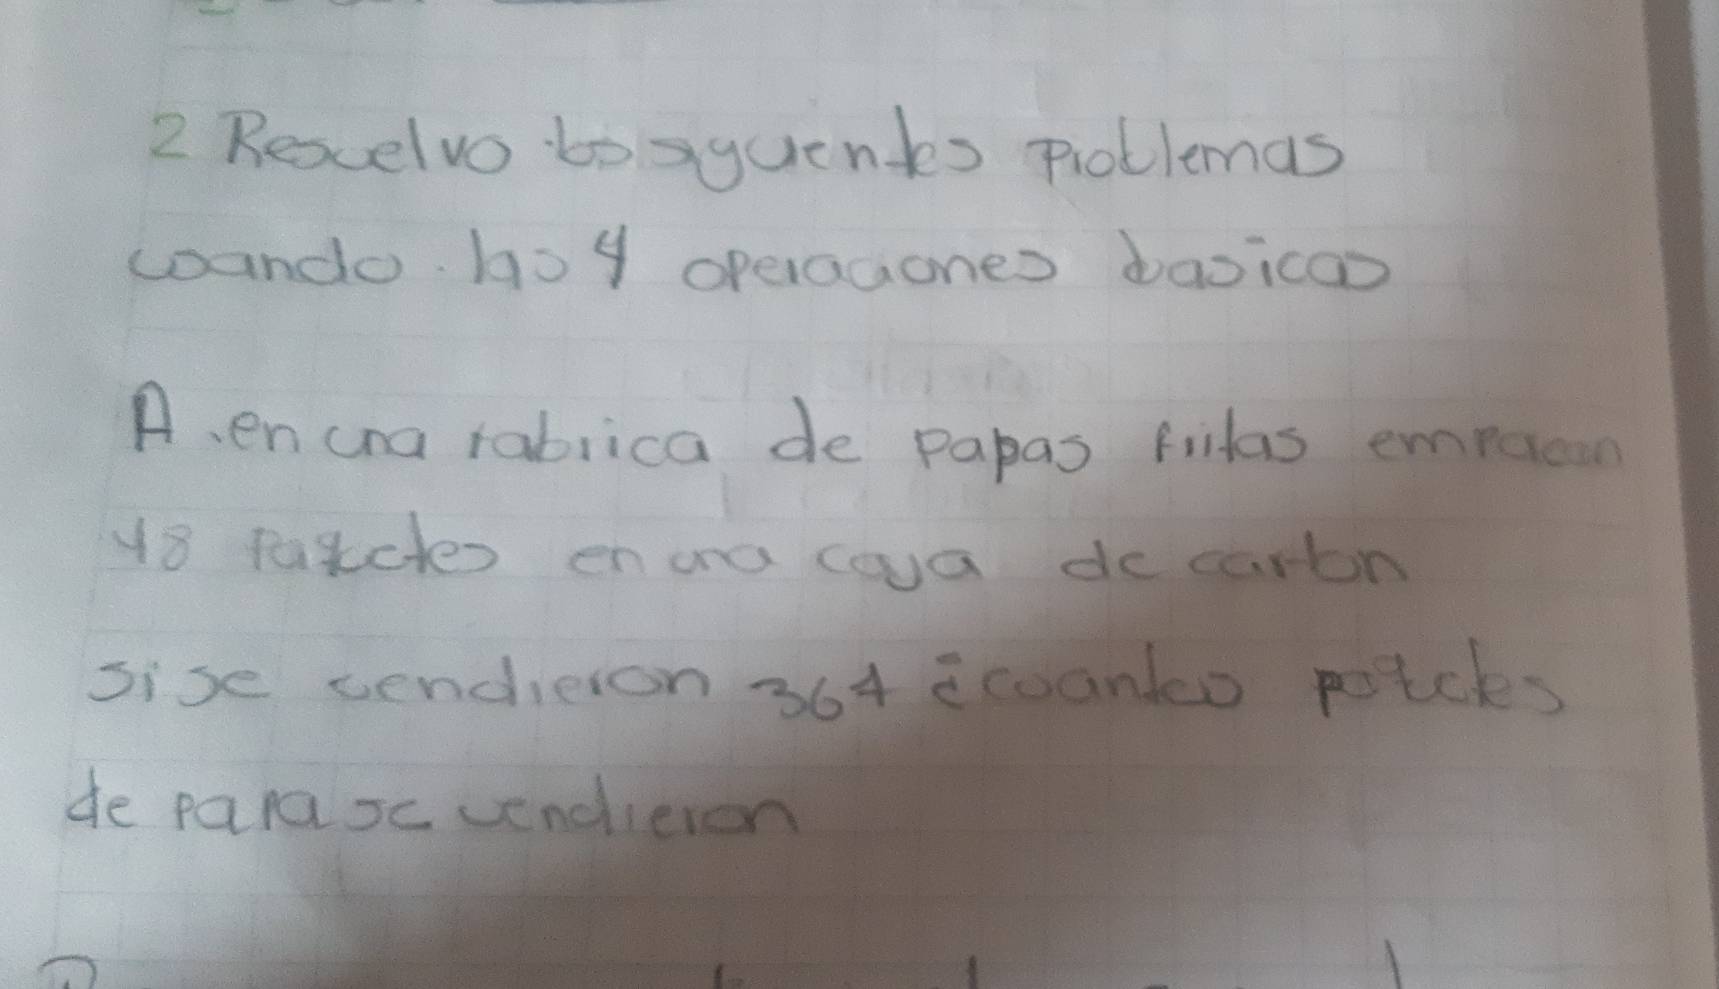 2 Resuelvo los siguientes problemas
usando las 4 operaciones basicas
A. en una fabrica de papas fritas empacan
48 paketes en una caja de carton
si se vendieron 364 ¿cuantos paketes
de papa se vendieron